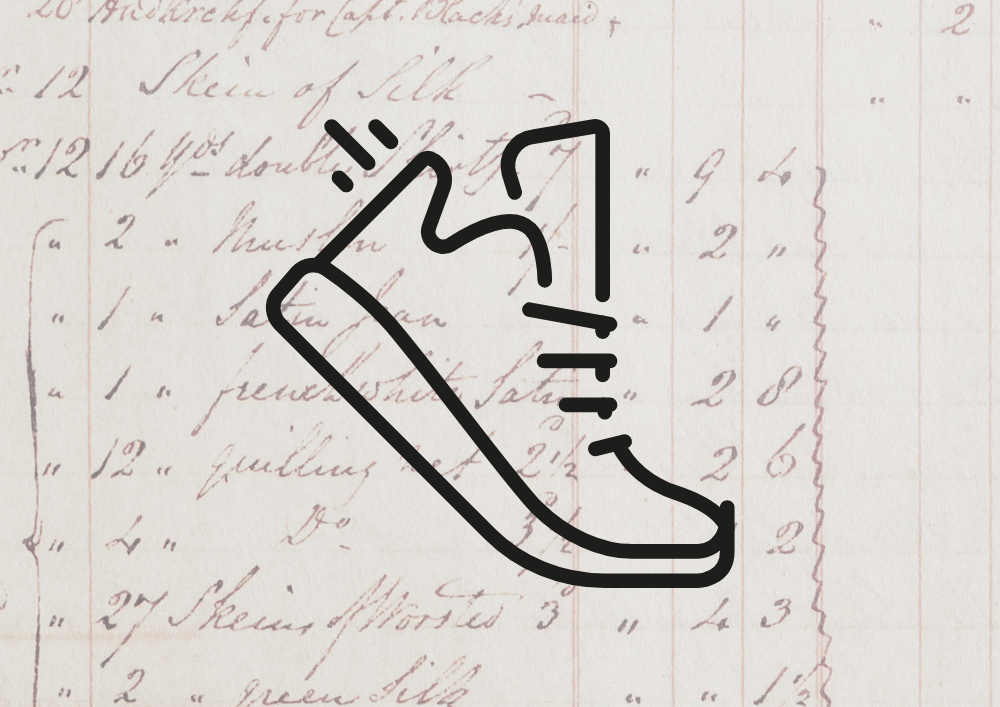 20 Handkrchf. for Capt. Blacks maid, " 2
12 Skein of Silk - " "
12 16 yds double 7 " 9 4
" 2 " Muslin 1/- " 2 "
" 1 " Satin fan " 1 "
" 1 " french white Satin " 2 8
" 12 " quilling net 2 1/2 " 2 6
" 4 " Do 3 1/2 2
" 27 Skeins of Worsted 3 " 4 3
" 2 " green Silk " " 1 1/2